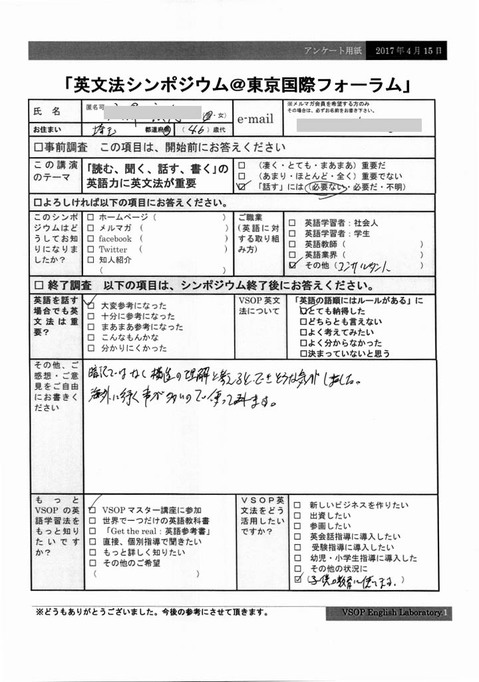 アンケート用紙 2017年4月15日
「英文法シンポジウム@東京国際フォーラム」
氏 名 匿名可 ・女) e-mail ※メルマガ会員を希望する方のみ
その場合は、必ずお名前をお書き下さい。
お住まい 埼玉 都道府県 (46)歳代
□事前調査 この項目は、開始前にお答えください
この講演のテーマ 「読む、聞く、話す、書く」の英語力に英文法が重要
□ (凄く・とても・まあまあ)重要だ
□ (あまり・ほとんど・全く)重要でない
□ 「話す」には(必要ない・必要だ・不明)
□よろしければ以下の項目にお答えください。
このシンポジウムはどうしてお知りになりましたか?
□ ホームページ( )
□ メルマガ ( )
□ facebook ( )
□ Twitter ( )
□ 知人紹介
( )
ご職業(英語に対する取り組み方)
□ 英語学習者:社会人
□ 英語学習者:学生
□ 英語教師( )
□ 英語業界( )
□ その他(コンサルタント )
□ 終了調査 以下の項目は、シンポジウム終了後にお答えください。
英語を話す場合でも英文法は重要?
□ 大変参考になった
□ 十分に参考になった
□ まあまあ参考になった
□ こんなもんかな
□ 分かりにくかった
VSOP英文法について
「英語の語順にはルールがある」に
□とても納得した
□どちらとも言えない
□よく考えてみたい
□よく分からなかった
□決まっていないと思う
その他、ご感想・ご意見をご自由にお書きください
暗記ではなく構造の理解と考えるとできそうな気がしました。
海外に行く事が多いので使ってみます。
もっとVSOPの英語学習法をもっと知りたいですか?
□ VSOPマスター講座に参加
□ 世界で一つだけの英語教科書
「Get the real:英語参考書」
□ 直接、個別指導で聞きたい
□ もっと詳しく知りたい
□ その他のご希望
( )
VSOP英文法をどう活用したいですか?
□ 新しいビジネスを作りたい
□ 出資したい
□ 参画したい
□ 英会話指導に導入したい
□ 受験指導に導入したい
□ 幼児・小学生指導に導入したい
□ その他の状況に
□ (子供の教育に使ってみます。)
※どうもありがとうございました。今後の参考にさせて頂きます。
VSOP English Laboratory 1